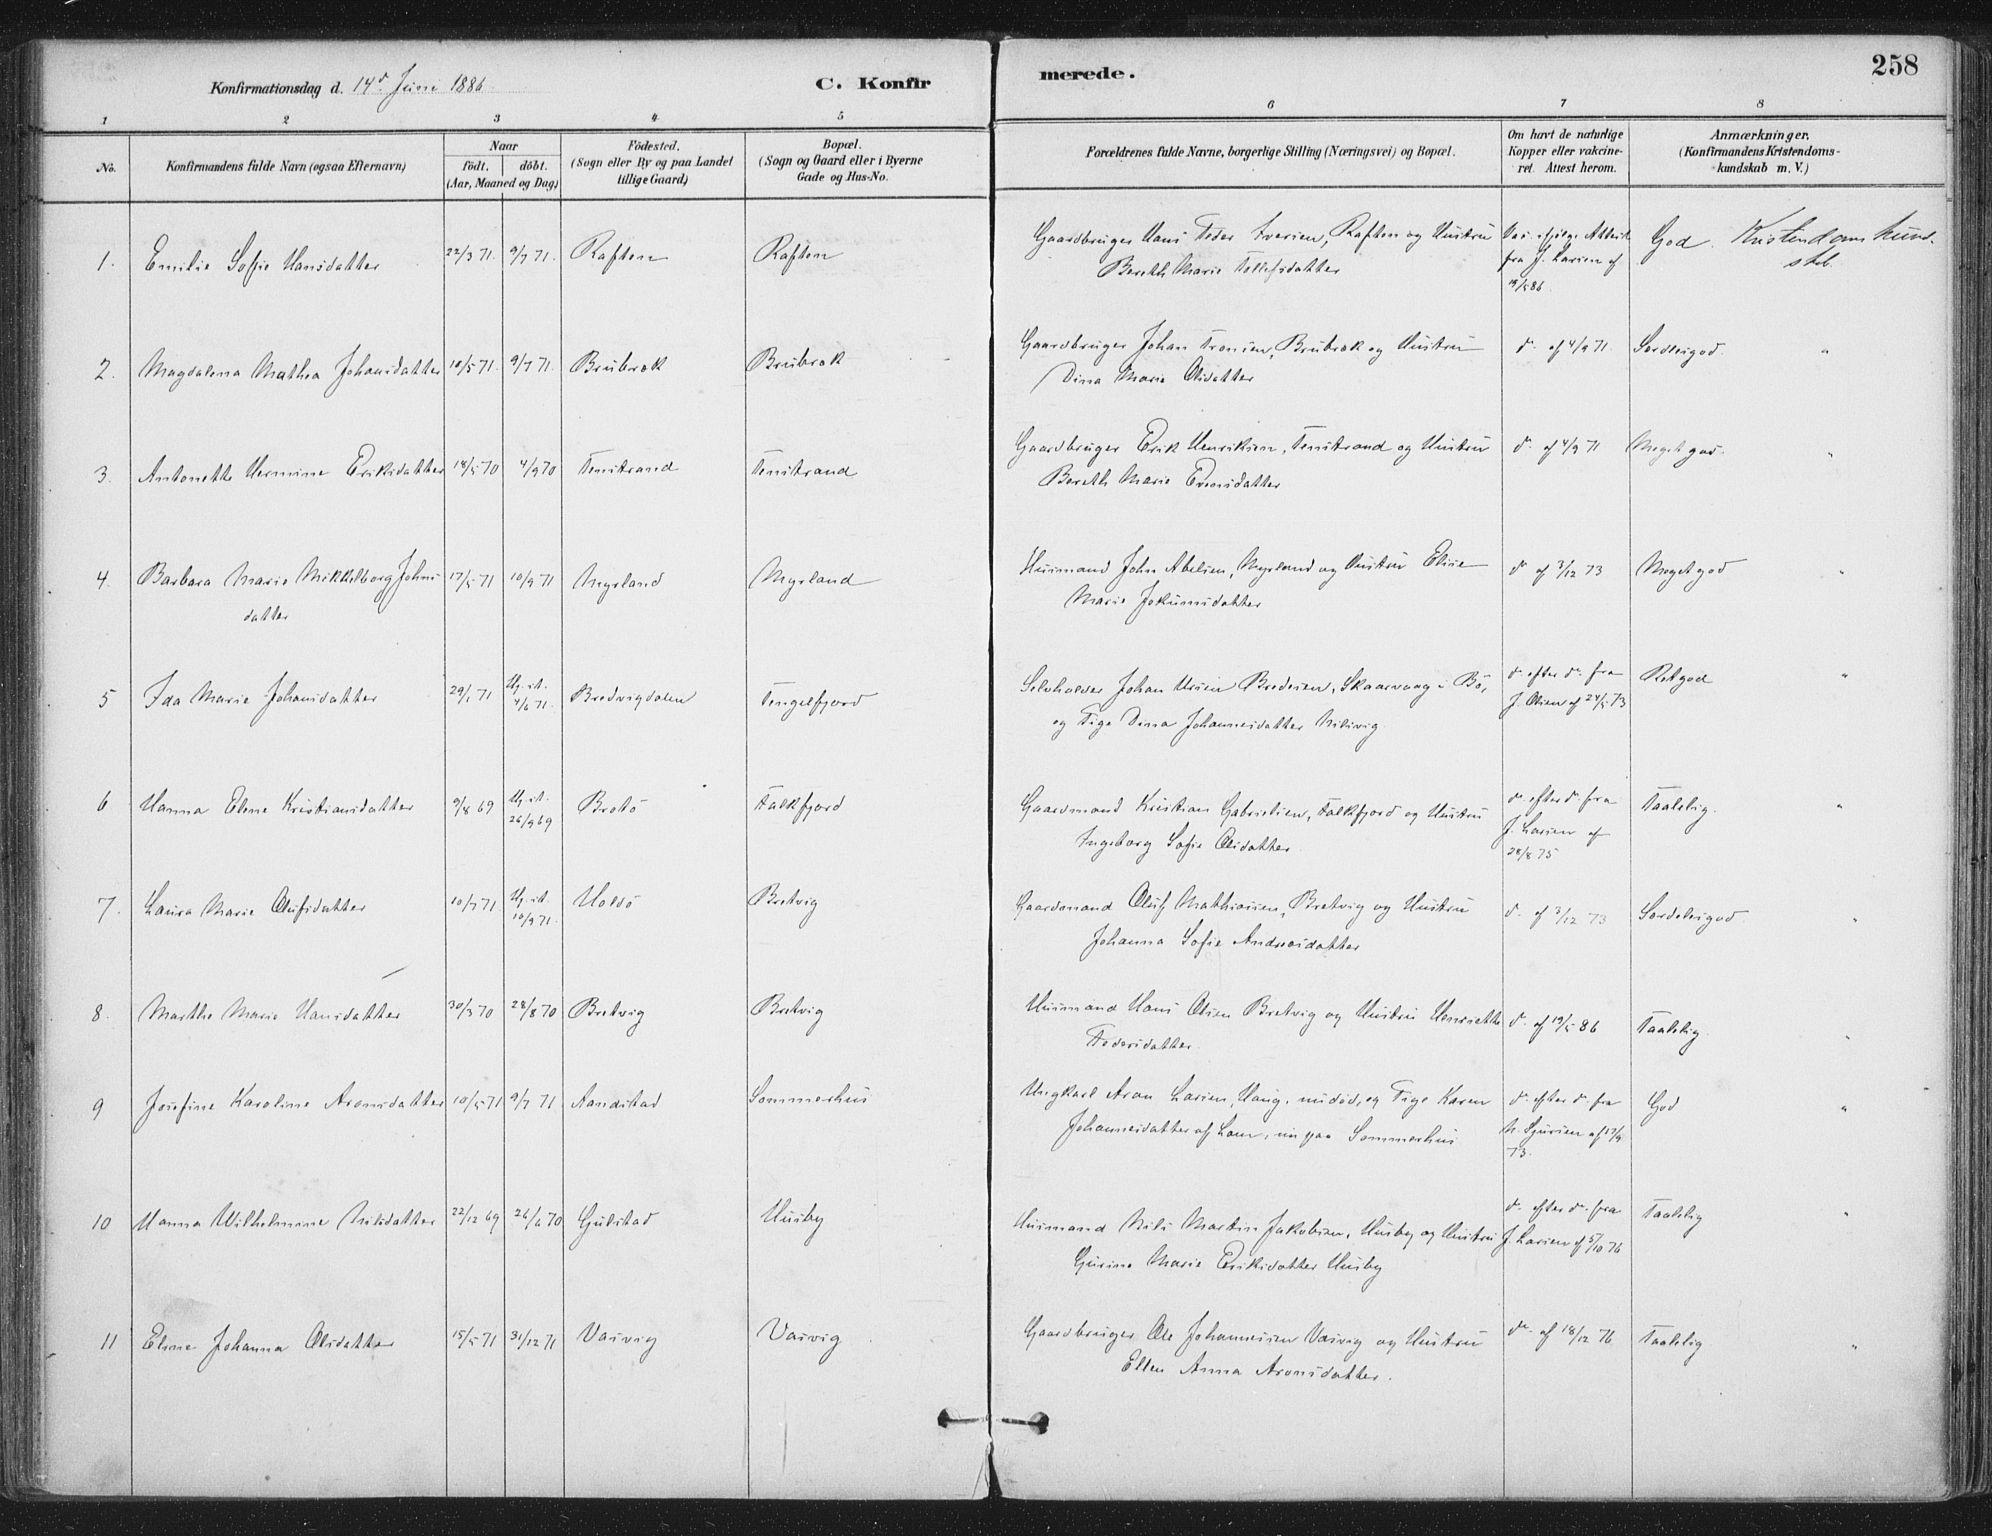 258
Konfirmationsdag d. 14de Juni 1886
C. Konfirmerede.
1 2 3 4 5 6 7 8
No.
Konfirmandens fulde Navn (ogsaa Efternavn)
Naar
födt. döbt.
(Aar, Maaned og Dag)
Födested.
(Sogn eller By og paa Landet
tillige Gaard)
Bopæl.
(Sogn og Gaard eller i Byerne
Gade og Hus-No.
Forældrenes fulde Navne, borgerlige Stilling (Næringsvei) og Bopæl.
Om havt de naturlige
Kopper eller vakcine-
ret. Attest herom.
Anmærkninger.
(Konfirmandens Kristendoms-
kundskab m. V.)
1. Emilie Sofie Hansdatter 22/3 71. 9/7 71. Raften Raften
Gaardbruger Hans Peder Iversen, Raften og Hustru
Bereth Marie Tollefsdatter
Vac. ifølge Attest
fra J. Larsen af
19/5 86.
God Kristendomskund-
skab.
2. Magdalena Mathea Johansdatter 10/5 71. 9/7 71. Brubrok Brubrok
Gaardbruger Johan Tronsen, Brubrok og Hustru
Dina Marie Olsdatter
do. af 4/9 71. Særdelesgod. "
3. Antonette Hermine Eriksdatter 18/5 70 4/9 70 Tenstrand Tenstrand
Gaardbruger Erik Henriksen, Tenstrand og Hustru
Bereth Marie Evensdatter
do. af 4/9 71 Megetgod. "
4. Barbara Marie Mikkelborg Johns-
datter
17/5 71 10/9 71 Myrland Myrland
Husmand John Abelsen, Myrland og Hustru Elise
Marie Jokumsdatter
do af 3/12 73 Megetgod "
5 Ida Marie Johansdatter 29/1 71 Hj. dt.
4/6 71. Bredvigdalen Tengelfjord
Selveier Johan Ursin Bredesen, Skaarvaag i Bö,
og Pige Dina Johannesdatter Nilsvig.
do. efter do. fra
J. Olsen af 24/5 73
Retgod "
6 Hanna Eline Kristiansdatter 9/8 69 Hj. dt.
26/9 69 Brotö Falkfjord
Gaardmand Kristian Gabrielsen, Falkfjord og Hustru
Ingeborg Sofie Olsdatter.
do. efter do. fra
J. Larsen af
28/8 75
Taalelig. "
7. Laura Marie Olufsdatter 10/7 71 Hj. dt.
10/9 71. Holdö Bretvig
Gaardmand Oluf Mathiassen, Bretvig og Hustru
Johanna Sofie Andreasdatter
do. af 3/12 73 Særdelesgod. "
8. Marthe Marie Hansdatter 30/3 70 28/8 70 Bretvig Bretvig
Husmand Hans Olsen Bretvig og Hustru Henriette
Pedersdatter.
do. af 19/5 86 Taalelig. "
9 Josefine Karoline Aronsdatter 10/5 71 9/7 71 Aandstad Sommerhus
Ungkarl Aron Larsen, Haug, nu död, og Pige Karen
Johannesdatter af Lam, nu paa Sommerhus
do. efter do. fra
N. Sjursen af 17/9
73.
God "
10 Hanna Wilhelmine Nilsdatter 22/12 69 26/6 70 Gulstad Husby
Husmand Nils Martin Jakobsen, Husby og Hustru
Gurine Marie Eriksdatter Husby
do. efter do. fra
J. Larsen af 5/10 76
Taalelig "
11 Eline Johanna Olsdatter 15/5 71 31/12 71 Varvig Varvig
Gaardbruger Ole Johannessen Varvig og Hustru
Ellen Anna Aronsdatter.
do. af 18/12 76. Taalelig "